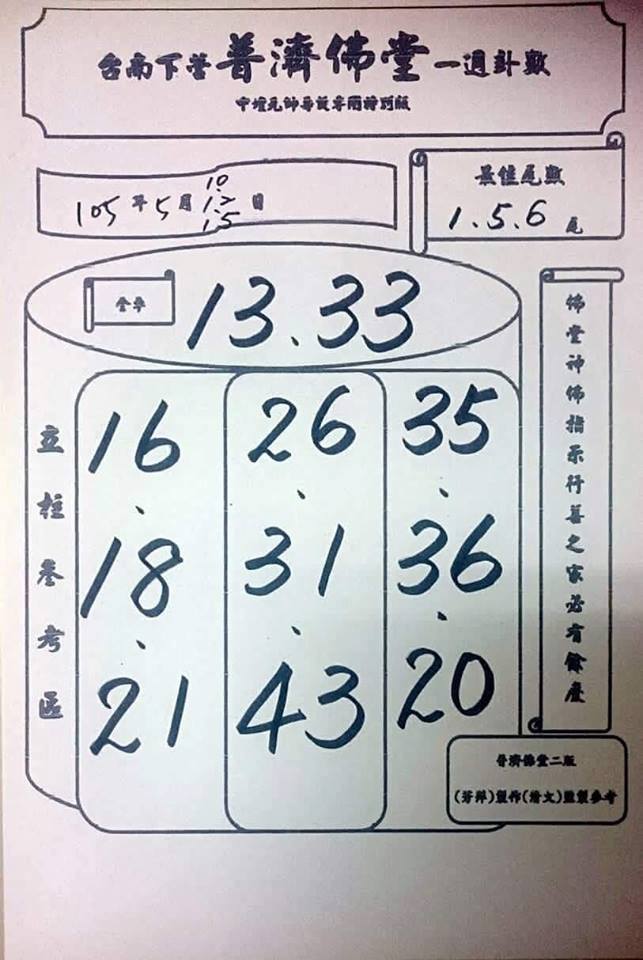 台南下營普濟佛堂一週計數
中壇元帥喬設專冊特別版
105年5月10.12.15日
無佳尾數
1.5.6尾
全車
13.33
立柱參考區
16、18、21
26、31、43
35、36、20
佛堂神佛指示行善之家必有餘慶
普濟佛堂二版
(芬萍)製作(清文)監製參考